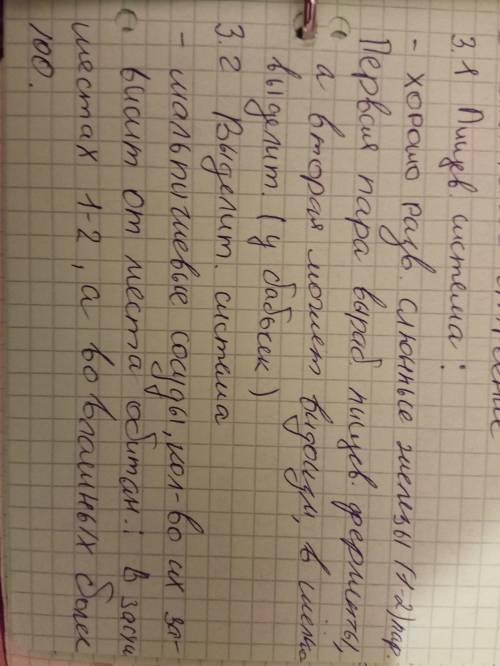 3.1 Пищев. система:
- хорошо разв. слюнные железы (1-2) пар.
Первая пара выраб. пищев. ферменты,
а вторая может видоизм, в
выделит. (у бабочек)
3.2 Выделит. система
- мальпигиевые сосуды, кол-во их за-
висит от места обитан.: в засуш
местах 1-2, а во влашных более
100.